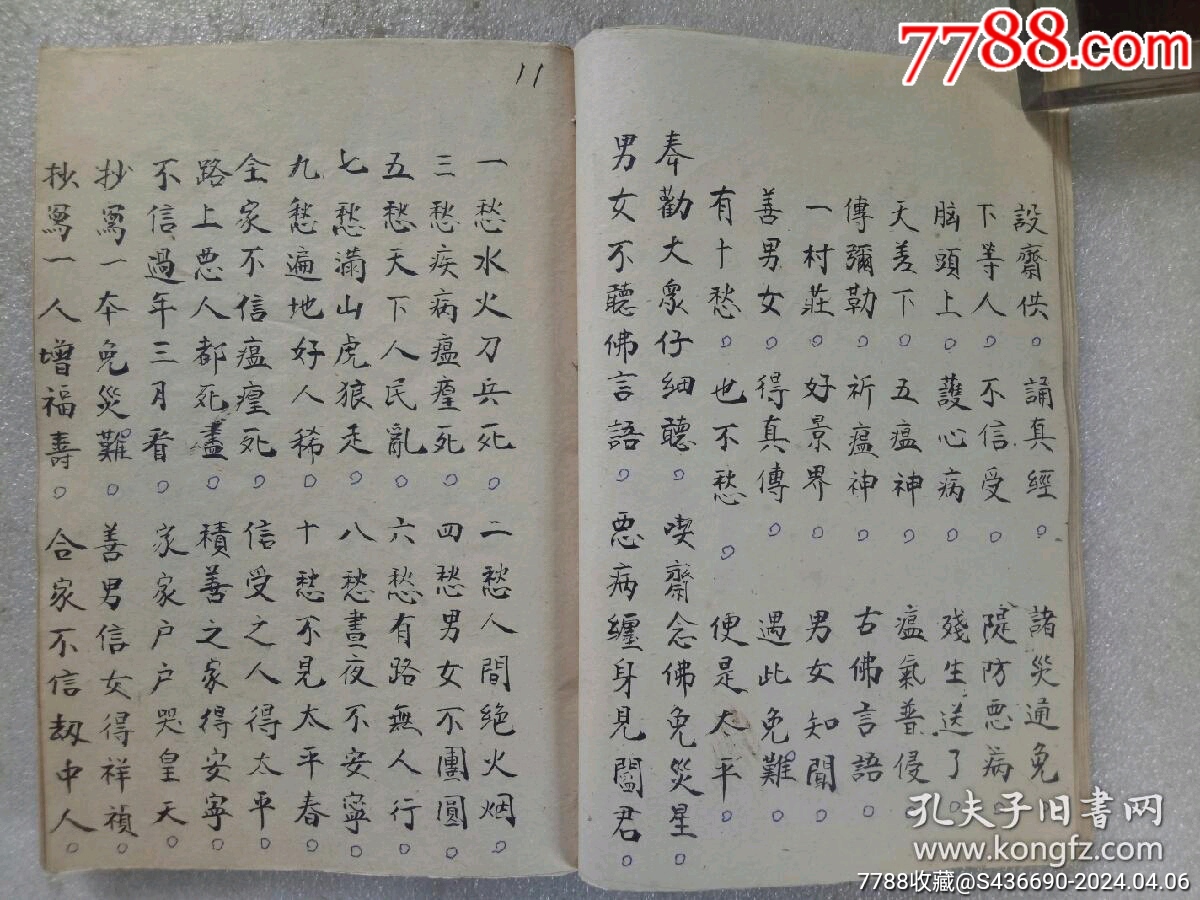 7788.com
設齋供。誦真經。諸災通免
下等人。不信受。隄防惡病
脑頭上。護心病。殘生送了
天差下。五瘟神。瘟氣普侵
傳彌勒。祈瘟神。古佛言語。
一村莊。好景界。男女知聞。
善男女。得真傳。遇此免難。
有十愁。也不愁。便是太平。
奉勸大衆仔細聽。喫齋念佛免災星。
男女不聽佛言語。惡病纏身見閻君。
11
一愁水火刀兵死。二愁人間绝火烟。
三愁疾病瘟瘽死。四愁男女不團圓。
五愁天下人民亂。六愁有路無人行。
七愁滿山虎狼走。八愁晝夜不安寧。
九愁遍地好人稀。十愁不見太平春。
全家不信瘟瘽死。信受之人得太平。
路上惡人都死盡。積善之家得安寧。
不信過年三月看。家家户户哭皇天。
抄寫一本免災難。善男信女得祥禎。
抄寫一人增福壽。合家不信劫中人。
孔夫子旧书网
www.kongfz.com
7788收藏@S436690-2024.04.06